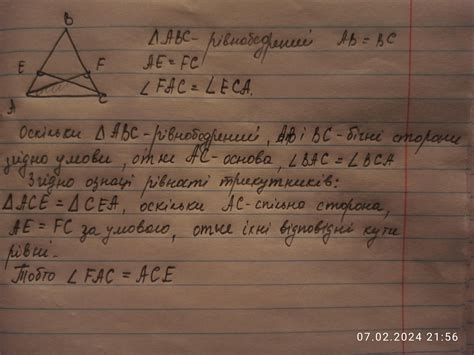 B
E
F
A
C
△ABC - рівнобедрений AB = BC
AE = FC
∠FAC = ∠ECA.
Оскільки △ABC - рівнобедрений, AB і BC - бічні сторони
згідно умови, отже AC - основа, ∠BAC = ∠BCA
Згідно ознаці рівності трикутників:
△ACE = △CEA, оскільки AC - спільно сторона,
AE = FC за умовою, отже їхні відповідні кути
рівні.
Тобто ∠FAC = ACE
07.02.2024 21:56